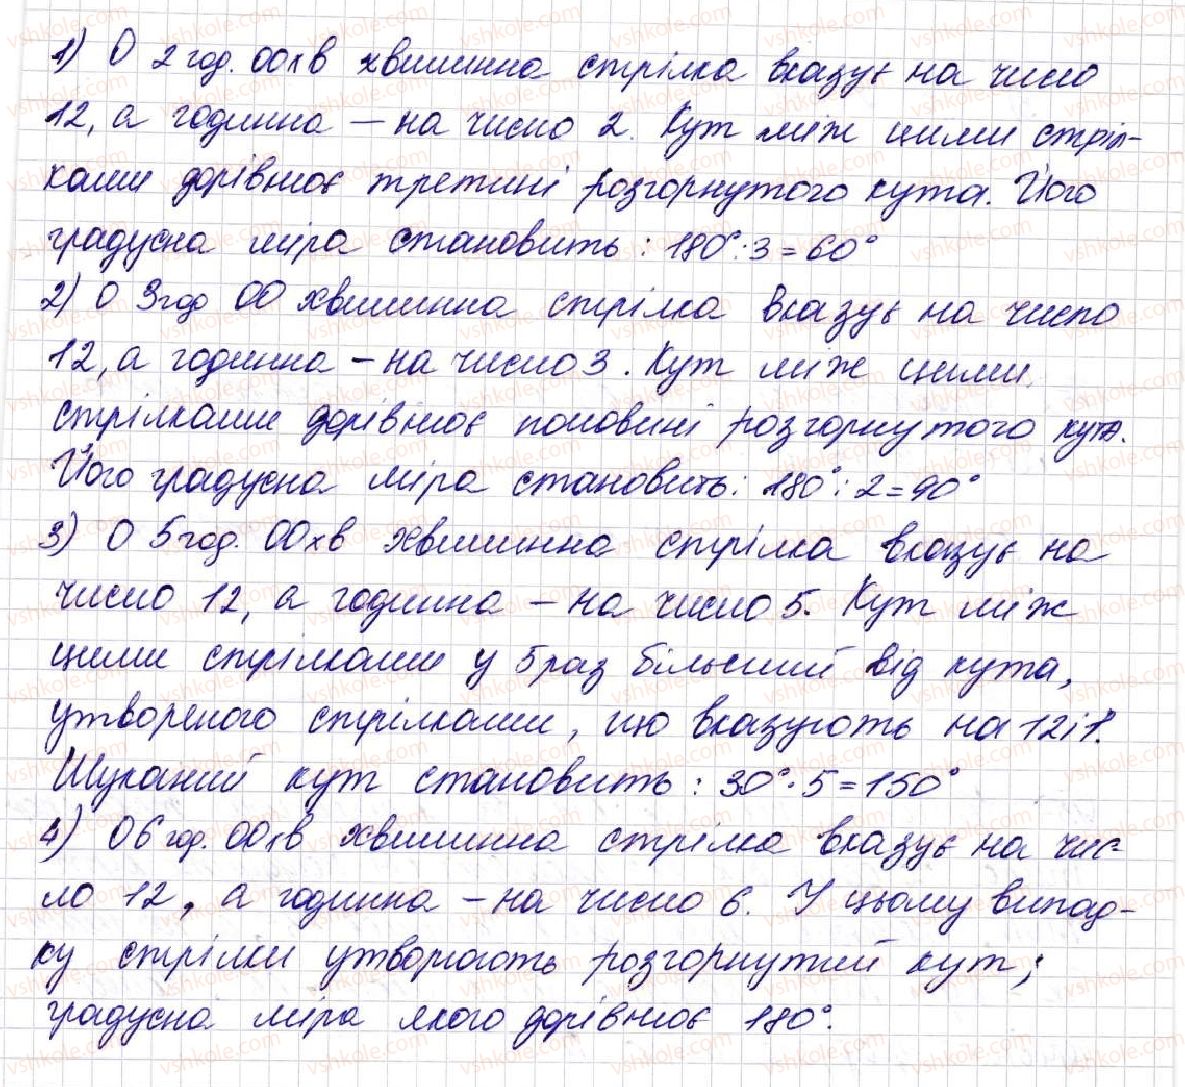 1) О 2 год. 00 хв хвилинна стрілка вказує на число
12, а годинна – на число 2. Кут між цими стріл-
ками дорівнює третині розгорнутого кута. Його
градусна міра становить: 180° : 3 = 60°
2) О 3 год 00 хвилинна стрілка вказує на число
12, а годинна – на число 3. Кут між цими
стрілками дорівнює половині розгорнутого кута.
Його градусна міра становить: 180° : 2 = 90°
3) О 5 год. 00 хв хвилинна стрілка вказує на
число 12, а годинна – на число 5. Кут між
цими стрілками у 5 раз більший від кута,
утвореного стрілками, що вказують на 12 і 1.
Шуканий кут становить: 30° · 5 = 150°
4) О 6 год. 00 хв хвилинна стрілка вказує на чис-
ло 12, а годинна – на число 6. У цьому випад-
ку стрілки утворюють розгорнутий кут,
градусна міра якого дорівнює 180°.
vshkole.com